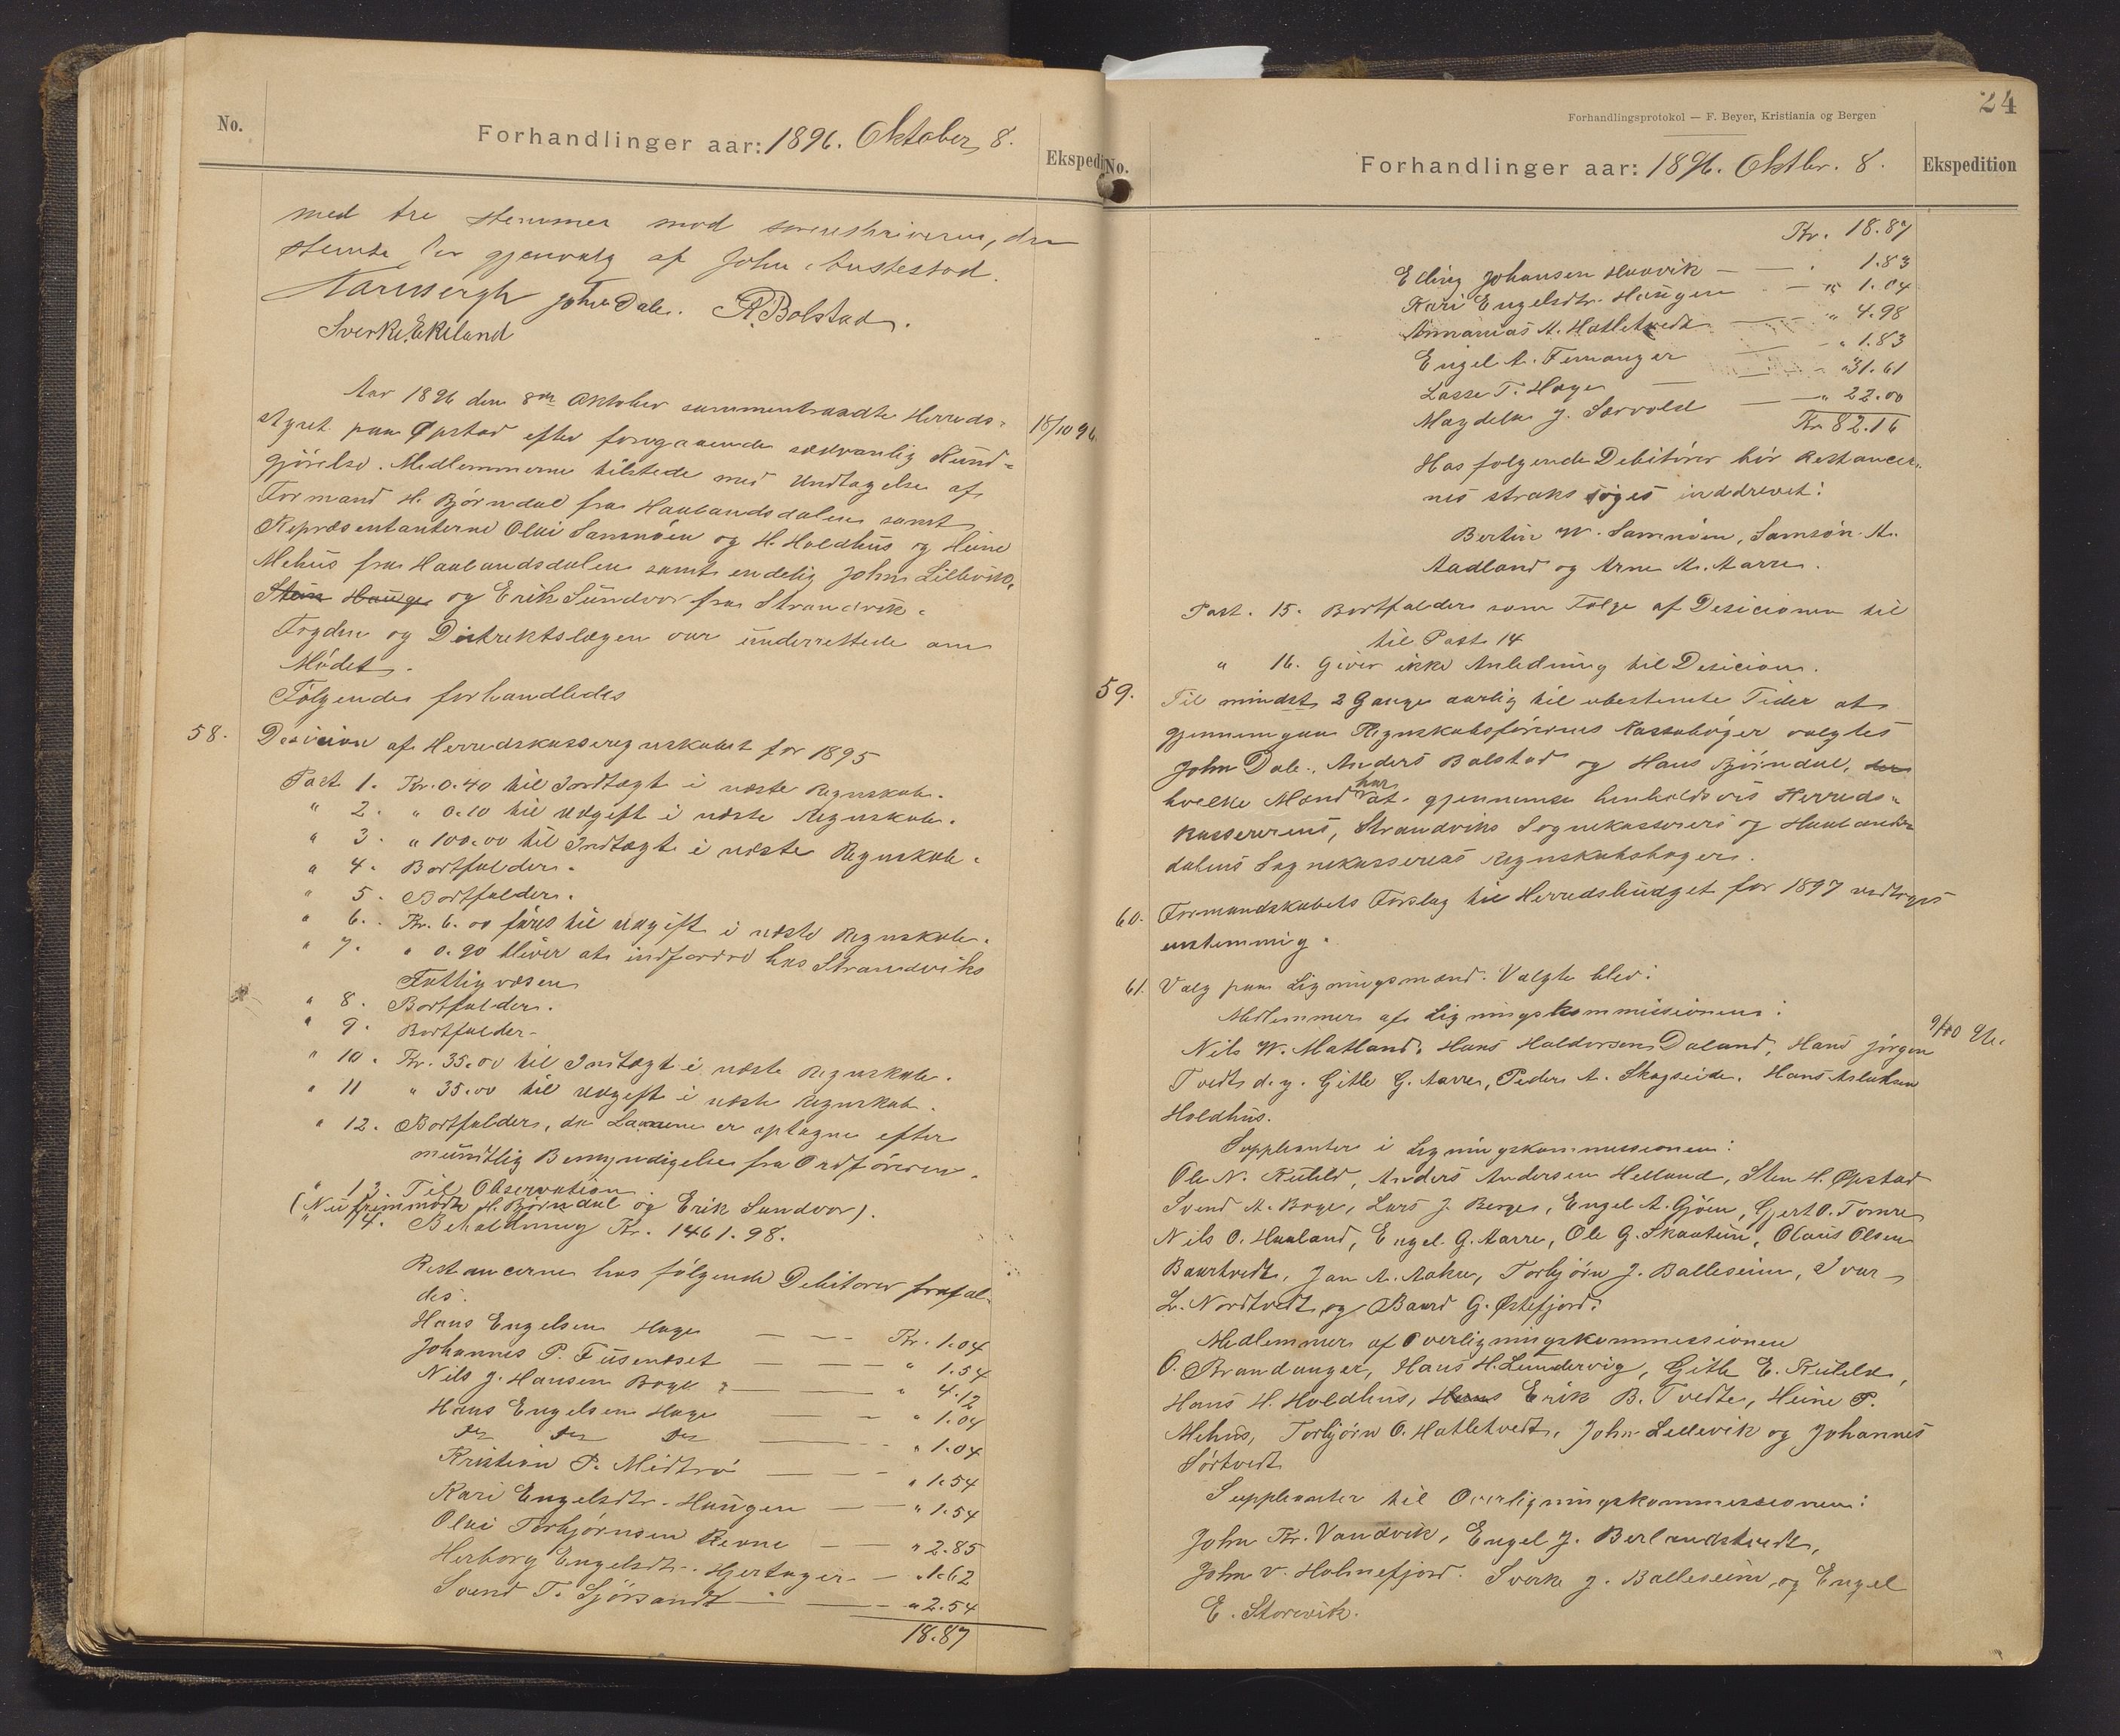 No.
Forhandlinger aar: 1896. Oktober 8.
Ekspedi
med tre stemmer mod sorenskriveren, der
stemte for gjenvalg af John Austestad.
John Dale. Bolstad.
Sverke Ekeland
Aar 1896 den 8de Oktober sammentraadte Herreds-
styret paa Øpstad efter foregaaende sædvanlig Kund-
gjörelse. Medlemmerne tilstede med Undtagelse af
Formand H. Björndal fra Haalandsdalen samt
Repræsentanterne Olai Samnöen og H. Holdhus og Heine
Mehus fra Haalandsdalen samt endelig John Lillevik,
Stein Hauge og Erik Sundvor fra Strandvik.
Fogden og Distriktslægen var underrettede om
Mödet.
Fölgende forhandledes
18/10 96.
58. Desision af Herredskasseregnskabet for 1895
Post 1. Kr. 0.40 til Indtægt i næste Regnskab.
" 2. " 0.10 til Udgift i næste Regnskab.
" 3. " 100.00 til Indtægt i næste Regnskab.
" 4. Bortfalder.
" 5. Bortfalder.
" 6. Kr. 6.00 föres til Udgift i næste Regnskab.
" 7. " 0.90 bliver at indfordre hos Strandviks
Fattigvæsen
" 8. Bortfalder.
" 9. Bortfalder.
" 10. Kr. 35.00 til Indtægt i næste Regnskab.
" 11 " 35.00 til Udgift i næste Regnskab.
" 12. Bortfalder, da Laanene er optagne efter
mundtlig Bemyndigelse fra Ordföreren.
" 13 Til Observation.
(Nu fremmödte H. Björndal og Erik Sundvor).
" 14. Beholdning Kr. 1461.98.
Restancerne hos fölgende Debitorer frafal-
des:
Hans Engelsen Hage — — Kr. 1.04
Johannes P. Fusenæset — — " 1.54
Nils J. Hansen Boge — — " 4.12
Hans Engelsen Hage — — " 1.04
Do Do Do — — " 1.04
Kristian P. Midtrö — — " 1.54
Kari Engelsdtr. Haugen — — " 1.54
Olai Torbjörnsen Revne — — " 2.85
Herborg Engelsdtr. Hjertager — " 1.62
Svend T. Sjörsandt — — " 2.54
18.87
24
Forhandlingsprotokol — F. Beyer, Kristiania og Bergen
No.
Forhandlinger aar: 1896. Oktbr. 8.
Ekspedition
Kr. 18.87
Elling Johansen Haavik — — " 1.83
Kari Engelsdtr. Haugen — " 1.04
Annanias A. Hatletvedt — " 4.98
Engel A. Femanger — " 1.83
Lasse T. Hage — " 31.61
Magdela J. Sævold — " 22.00
Kr. 82.16
Hos folgende Debitörer bör Restancer-
nes straks söges inddrevet:
Bertin W. Samnöen, Samson A.
Aadland og Arne M. Aarre.
Post. 15. Bortfalder som Fölge af Desicionen til
til Post 14
" 16. Giver ikke Anledning til Desicion.
59. Til mindst 2 Gange aarlig til ubestemte Tider at
gjennemgaa Regnskabsförernes Kassaböger valgtes
John Dale, Anders Bolstad og Hans Björndal,
hvilke Mænd har at gjennemse henholdsvis Herreds-
kassererens, Strandviks Sognekasserers og Haalands-
dalens Sognekasserers Regnskabsboger.
60. Formandskabets Forslag til Herredsbudget for 1897 vedtoges
enstemmig.
61. Valg paa Ligningsmænd. Valgte blev:
Medlemmer af Ligningskommissionen:
9/10 96.
Nils W. Matland, Hans Haldorsen Daland, Hans Jörgen
Tvedt d.y. Gitle G. Aarre, Peder A. Skogseide, Hans Aslaksen
Holdhus.
Suppleanter i Ligningskommissionen:
Ole N. Kuhle, Anders Andersen Helland, Sten H. Øpstad
Svend A. Boge, Lars J. Berge, Engel A. Gjöen, Gjert O. Tomre
Nils O. Haaland, Engel G. Aarre, Ole G. Skaatun, Olaus Olsen
Baartvedt, Jan A. Aakre, Torbjörn J. Balleseim, Ivar
L. Nordtvedt og Baard G. Østefjord.
Medlemmer af Overligningskommissionen
O. Brandanger, Hans H. Lundervig, Gitle E. Kuhle,
Hans H. Holdhus, Hans Erik B. Tvedte, Heine P.
Mehus, Torbjörn O. Hatletvedt, John Lillevik og Johannes
Sörtvedt
Suppleanter til Overligningskommissionen:
John Kr. Vandvik, Engel J. Berlandstvedt,
John V. Holmefjord. Sverke J. Balleseim og Engel
E. Storevik.